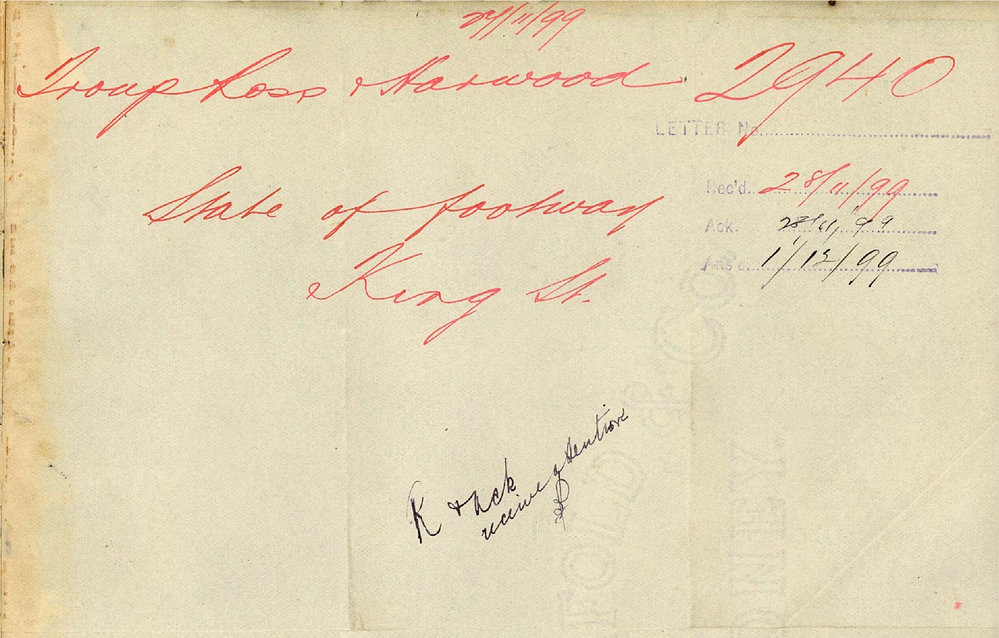 27/11/99
Troup Ross & Harwood 2940
LETTER No.
State of footway
King St.
Rec'd. 28/11/99
Ack. 28/11/99
Ans'd. 1/12/99
R & Ack
receive attention